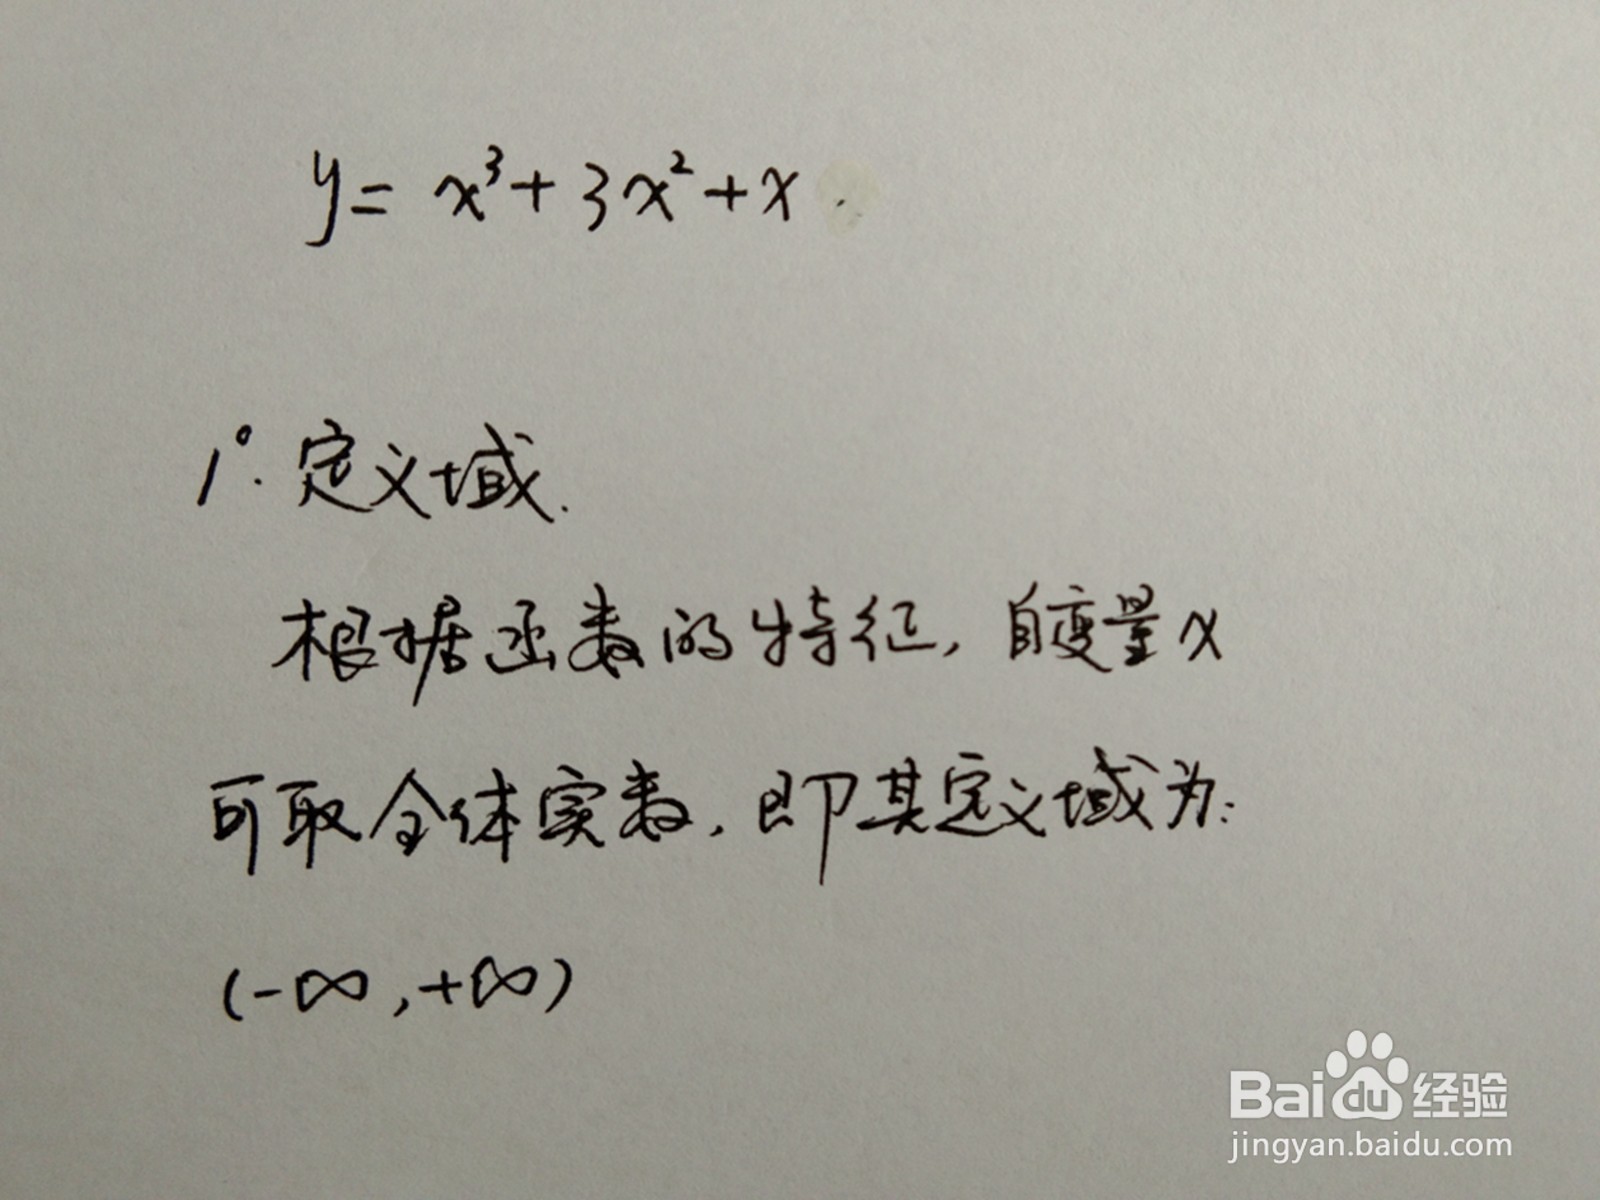 y = x³ + 3x² + x .
1°. 定义域.
根据函数的特征, 自变量x
可取全体实数, 即其定义域为:
(-∞, +∞)
Baidu 经验
jingyan.baidu.com